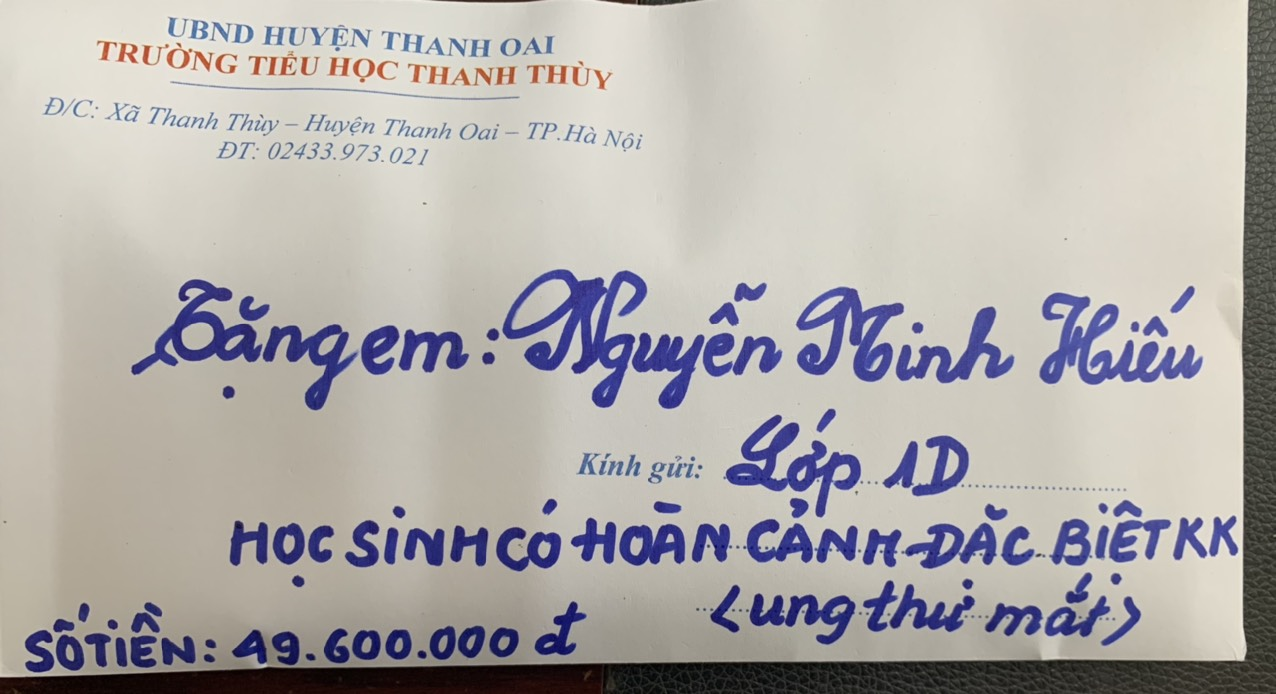 UBND HUYỆN THANH OAI
TRƯỜNG TIỂU HỌC THANH THÙY
Đ/C: Xã Thanh Thùy – Huyện Thanh Oai – TP.Hà Nội
ĐT: 02433.973.021
Tặng em: Nguyễn Minh Hiếu
Kính gửi: Lớp 1D
HỌC SINH CÓ HOÀN CẢNH ĐẶC BIỆT KK
<ung thư mắt>
SỐ TIỀN: 49.600.000 đ